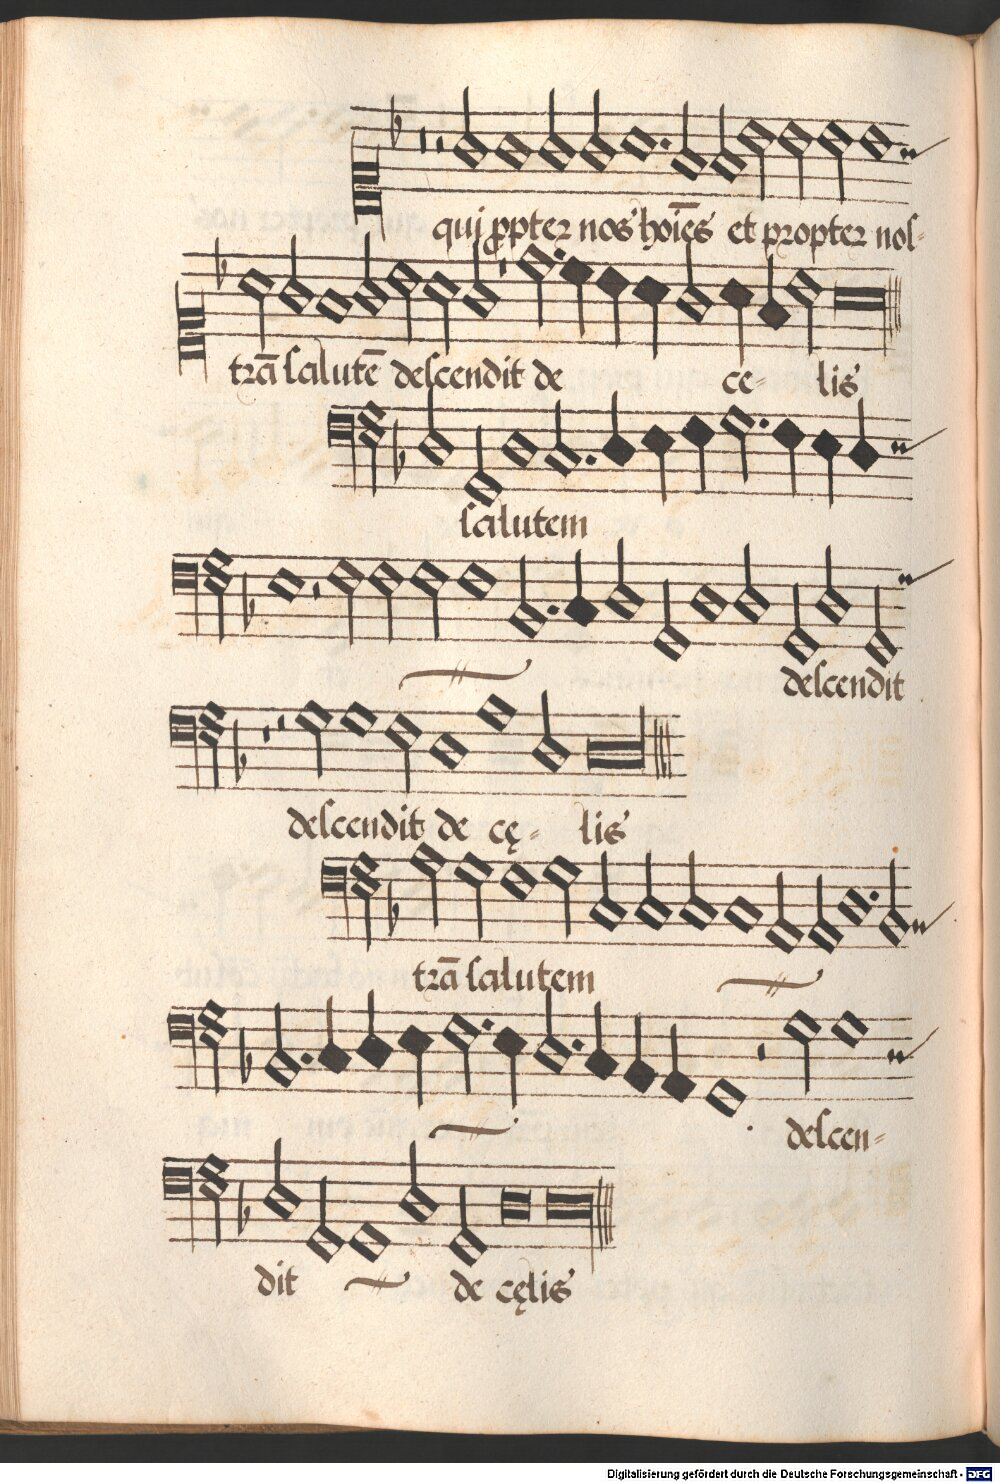 qui ꝓpter nos hoı̄es et propter nos-
trā salutē descendit de ce- lis
salutem
descendit
descendit de cę- lis
trā salutem
descen-
dit de cęlis
Digitalisierung gefördert durch die Deutsche Forschungsgemeinschaft - DFG